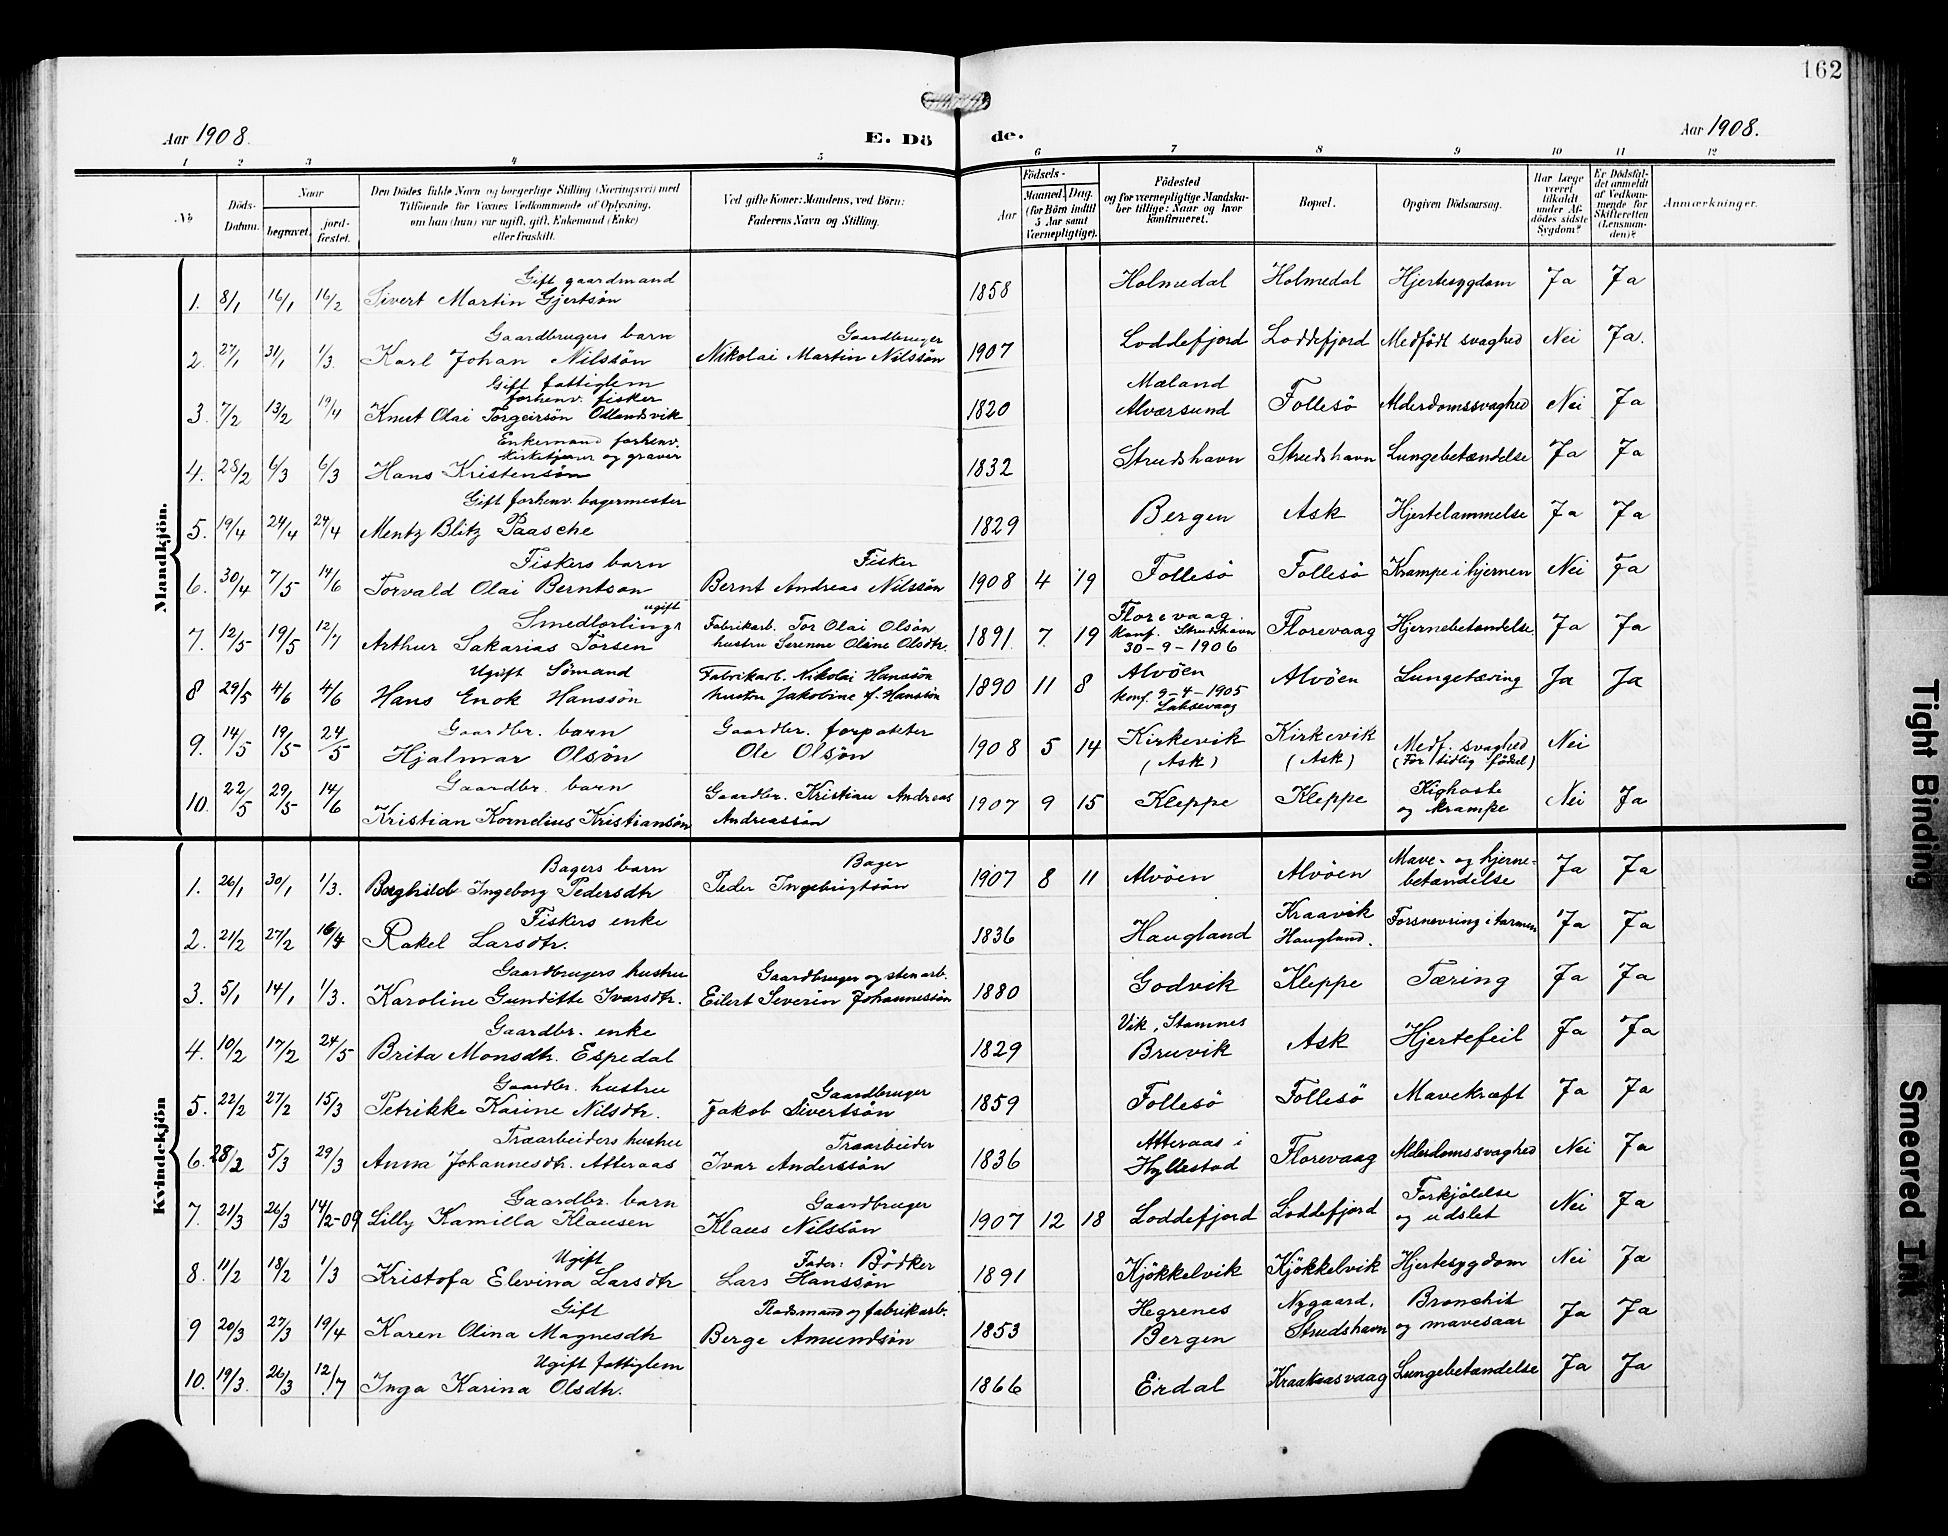 162
Aar 1908.
E. Dö
de.
Aar 1908.
1 2 3 4 5 6 7 8 9 10 11 12
No
Döds-
Datum.
Naar
begravet.
jord-
fæstet.
Den Dödes fulde Navn og borgerlige Stilling (Næringsvei) med
Tilföiende for Voxnes Vedkommende af Oplysning,
om han (hun) var ugift, gift, Enkemand (Enke)
eller fraskilt.
Ved gifte Koner: Mandens, ved Börn:
Faderens Navn og Stilling.
Födsels-
Aar
Maaned. Dag.
(for Börn indtil
5 Aar samt
Værnepligtige).
Födested
og for værnepligtige Mandska-
ber tillige: Naar og hvor
konfirmeret.
Bopæl.
Opgiven Dödsaarsag.
Har Læge
været
tilkaldt
under Af-
dödes sidste
Sygdom?
Er Dödsfal-
det anmeldt
af Vedkom-
mende for
Skifteretten
(Lensman-
den)?
Anmærkninger.
Mandkjön.
Gift gaardmand
1. 8/1 16/1 16/2 Sivert Martin Gjertsön 1858 Holmedal Holmedal Hjertesygdom Ja Ja
Gaardbrugers barn Gaardbruger
2. 27/1 31/1 1/3. Karl Johan Nilssön Nikolai Martin Nilssön 1907 Loddefjord Loddefjord Medfödt svaghed Nei Ja.
Gift fattiglem
forhenv. fisker Mæland
3. 7/2 13/2 19/4 Knut Olai Torgeirsön Odlandsvik 1820 Alværsund Follesö Alderdomssvaghed Nei Ja
Enkemand forhenv.
kirketjener og graver
4. 28/2 6/3 6/3 Hans Kristensön 1832 Strudshavn Strudshavn Lungebetændelse Ja Ja
Gift forhenv. bagermester
5. 19/4 24/4 24/4 Mentz Blitz Paasche 1829 Bergen Ask Hjertelammelse Ja Ja
Fiskers barn Fisker
6. 30/4 7/5 14/6 Torvald Olai Berntson Bernt Andreas Nilssön 1908 4 19 Follesö Follesö Krampe i hjernen Nei Ja
ugift
Smedlærling Fabrikarb. Tor Olai Olsön Florevaag.
7. 12/5 19/5 12/7 Arthur Sakarias Torsen hustru Serenne Oline Olsdtr. 1891. 7. 19 konf. Strudshavn Florevaag Hjernebetændelse. Ja Ja
30-9-1906
Ugift Sömand Fabrikarb. Nikolai Hanssön Alvöen
8 29/5 4/6 4/6 Hans Enok Hanssön hustru Jakobine f. Hanssön 1890 11 8 konf. 9-4-1905 Alvöen Lungetæring Ja Ja
Laksevaag
Gaardbr. barn Gaardbr. forpakter
9. 14/5 19/5 24/5 Hjalmar Olsön Ole Olsön 1908 5 14 Kirkevik Kirkevik Medf. svaghed Nei
(Ask) (Ask) (For tidlig födsel)
Gaardbr. barn Gaardbr. Kristian Andreas Kighoste
10. 22/5 29/5 14/6 Kristian Kornelius Kristiansön Andreassön 1907 9 15 Kleppe Kleppe og krampe Nei Ja
Kvindekjön
Bagers barn Bager Mave- og hjerne-
1. 26/1 30/1 1/3. Borghild Ingeborg Pedersdtr Peder Ingebrigtsön 1907 8 11 Alvöen Alvöen betændelse Ja Ja
Fiskers enke Kraavik
2. 21/2 27/2 16/4 Rakel Larsdtr. 1836 Haugland Haugland. Forsnevring i tarmen Ja Ja
Gaardbrugers hustru Gaardbruger og stenarb.
3. 5/1 14/1 1/3. Karoline Gunditte Ivarsdtr. Eilert Severin Johannessön 1880 Godvik Kleppe Tæring Ja Ja
Gaardbr. enke Vik, Stamnes
4. 10/2 17/2 24/5 Brita Monsdtr. Espedal 1829 Bruvik Ask Hjertefeil Ja Ja
Gaardbr. hustru Gaardbruger
5. 22/2 27/2 15/3 Petrikke Karine Nilsdtr. Jakob Sivertsön 1859 Follesö Follesö Mavekræft Ja Ja
Træarbeiders hustru Træarbeider Atteraas i
6. 28/2 5/3 29/3 Anna Johannesdtr. Atteraas Ivar Anderssön 1836 Hyllestad Florevaag Alderdomssvaghed Nei Ja
Gaardbr. barn Gaardbruger Forkjölelse
7. 21/3 26/3 14/2-09 Lilly Kamilla Klausen Klaus Nilssön 1907 12 18 Loddefjord Loddefjord og udslet Nei Ja
Ugift Fader: Bödker
8. 11/2 18/2 1/3 Kristofa Elevina Larsdtr Lars Hanssön 1891 Kjökkelvik Kjökkelvik Hjertesygdom Nei Ja
Gift Pladsmand og fabrikarb. Hegrenes Nygaard, Bronchit
9 20/3 27/3 19/4 Karen Olina Magnesdtr Berge Amundsön 1853 Bergen Strudshavn og mavesaar Ja Ja
Ugift fattiglem
10. 19/3. 26/3 12/7 Inga Karina Olsdtr. 1866 Erdal Kraakaasvaag Lungebetændelse Ja Ja
Tight Binding
Smeared Ink